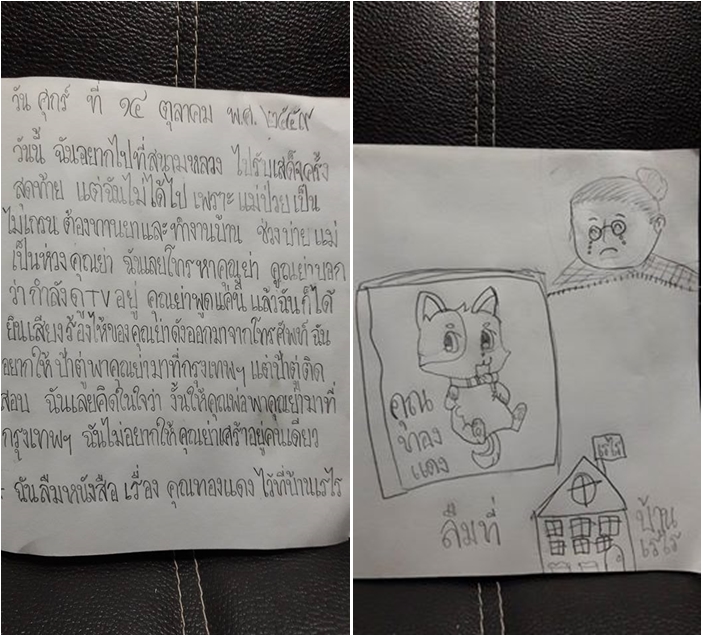 วัน ศุกร์ ที่ ๑๔ ตุลาคม พ.ศ. ๒๕๕๙
วันนี้ ฉันอยากไปที่สนามหลวง ไปรับเสด็จครั้ง
สุดท้าย แต่ฉันไม่ได้ไป เพราะ แม่ป่วย เป็น
ไมเกรน ต้องทานยาและ ทำงานบ้าน ช่วงบ่าย แม่
เป็นห่วง คุณย่า ฉันเลยโทรหาคุณย่า คุณย่าบอก
ว่ากำลังดู TV อยู่ คุณย่าพูดแค่นี้ แล้วฉันก็ได้
ยินเสียงร้องไห้ของคุณย่าดังออกมาจากโทรศัพท์ ฉัน
อยากให้ ป้าตู่ พาคุณย่ามาที่กรุงเทพฯ แต่ป้าตู่ติด
สอบ ฉันเลยคิดในใจว่า งั้นให้คุณพ่อพาคุณย่ามาที่
กรุงเทพฯ ฉันไม่อยากให้ คุณย่าเศร้าอยู่คนเดียว
- ฉันลืมหนังสือ เรื่อง คุณทองแดง ไว้ที่บ้านเรไร
คุณ
ทอง
แดง
เรไร
ลืมที่
บ้าน
เรไร